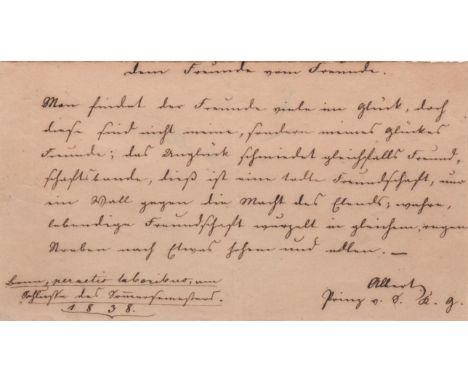 Dem Freunde vom Freunde.
Man findet der Freunde viele im Glück, doch
diese sind nicht meine, sondern meines Glückes
Freunde; das Unglück schmiedet gleichfalls Freund-
schaftsbande, dieß ist eine todte Freundschaft, nur
ein Wall gegen die Macht des Elends; wahre,
lebendige Freundschaft wurzelt in gleichem, regen
Streben nach Etwas Hohem und Edlem. —
Bonn, peractis laboribus, am
Schlusse des Sommersemesters.
1838.
Albert
Prinz v. S. K. G.